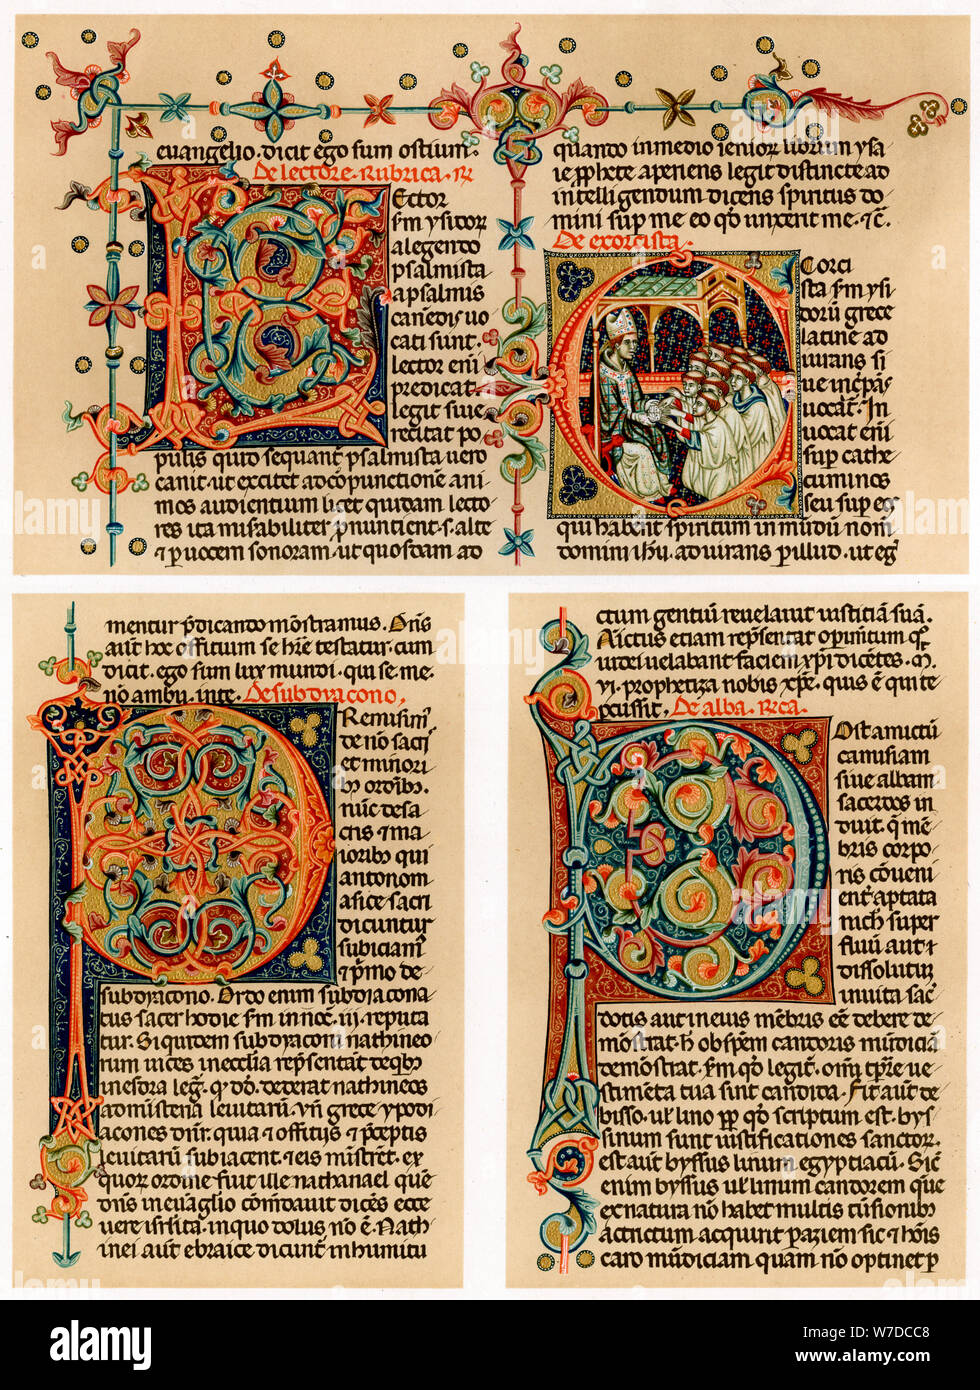 evangelio. dicit ego sum ostium.
De lectore. Rubrica. R
Lector
sm ysidor
a legendo
psalmista
a psalmis
canendis vo
cati sunt.
lector eni
predicat.
legit sive
recitat po
pulis quid sequant psalmista vero
canit ut excitet ad conpunctione ani
mos audientium licet quidam lecto
res ita misabiliter pnuntient. s. alte
et p vocem sonoram. ut quosdam ad
quando in medio senior librum ysa
ie pphete aperiens legit distincte ad
intelligendum dicens spiritus do
mini sup me eo qd unxerit me. et c.
De exorcista.
Exorci
sta sm ysi
dorum grece
latine ad
iurans si
ve increpans
vocat. In
vocat eni
sup cathe
cuminos
seu sup eos
qui habent spiritum inmundum nomine
domini ihu. adiurans p illud. ut eg
mentur pdicando monstramus. Dns
aut hoc offitium se here testatur. cum
dicit. ego sum lux mundi. qui se. me.
no ambu. inte. De subdyacono.
Premisim
de no sacr
et minori
b ordib.
nuc de sa
cris et ma
iorib qui
antonom
asice sacri
dicuntur
subiciam
et pmo de
subdyacono. Ordo enim subdyacona
tus sacer hodie sm innoc. iii. reputa
tur. Siquidem subdyaconi nathineo
rum vices in ecclia representat de qb
in esdra leg. q dd. dederat nathineos
ad misteria levitaru. Vn grece ypodi
acones dnr. quia et offitiis et pceptis
levitaru subiacent. et eis mistret. ex
quor ordine fuit ille nathanael que
dns in evaglio comedavit dices ecce
vere isrlita. in quo dolus no e. Nath
inei aut ebraice dicunt in humilitu
ctum gentiu revelavit iustitia sua.
Amictus etiam repsentat opimentum q
iudei velabant faciem xpi dicetes. m
vi. prophetiza nobis xpe. quis e qui te
percussit. De alba. Rica.
Post amictu
camisiam
sive albam
sacerdos in
duit. q me
bris corpo
ris coveni
ent aptata
nich super
fluu aut et
dissolutu
in vita sac
dotis aut in eius mebris ee debere de
mostrat. h ob spem candoris mudicia
demostrat. sm qd legit. omi tpre ve
stimeta tua sunt candida. Fit aut de
bisso. vl lino pp qd scriptum est. bys
sinum sunt iustificationes sanctor.
est aut byssus linum egyptiacu. Sic
enim byssus vl linum candorem que
ex natura no habet multis tusionib
actrictum acquirit pariem sic et hois
caro mudiciam quam no optinet p